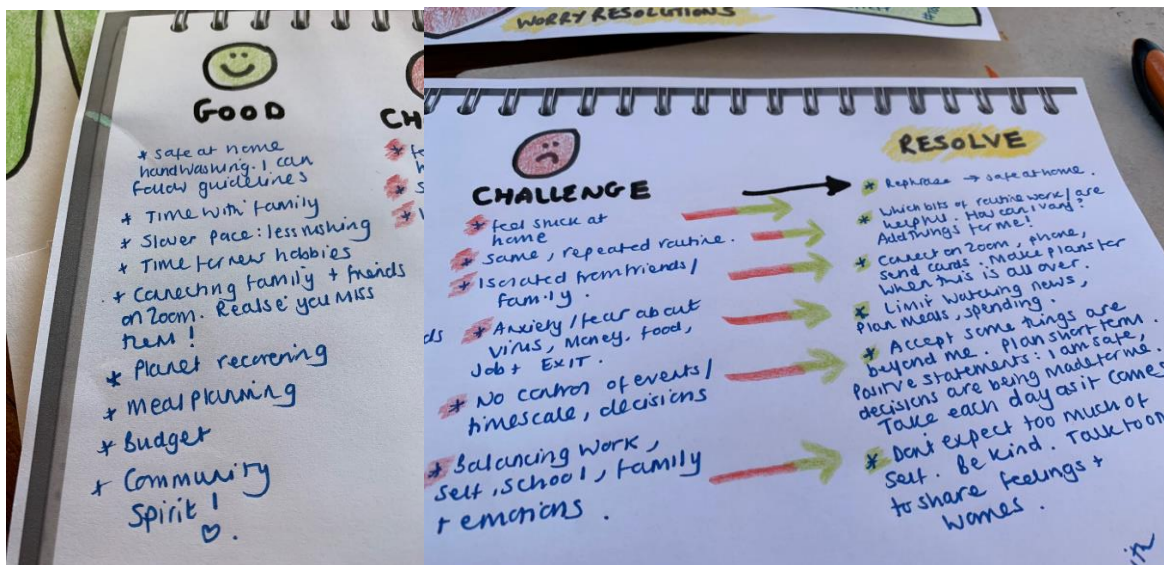 GOOD
* safe at home
handwashing. I can
follow guidelines
* Time with family
* Slower pace: less rushing
* Time for new hobbies
* Conecting family + friends
on Zoom. Realise you miss
them!
* Planet recovering
* Meal planning
* Budget
* Community
Spirit!
CH
WORRY RESOLUTIONS
CHALLENGE
* feel stuck at
home
* Same, repeated routine.
* Isolated from friends/
family.
* Anxiety/fear about
virus, money, food,
Job + EXIT.
* No control of events/
timescale, decisions
* Balancing work,
self, school, family
+ emotions.
RESOLVE
* Rephrase → safe at home.
* Which bits of routine work/are
helpful. How can I vary?
Add things for me!
* Conect on Zoom, phone,
send cards. Make plans for
when this is all over.
* Limit watching news,
Plan meals, spending.
* Accept some things are
beyond me. Plan short term.
Positive statements: I am safe,
decisions are being made for me.
Take each day as it comes
* Dont expect too much of
self. Be kind. Talk to
to share feelings +
worries.